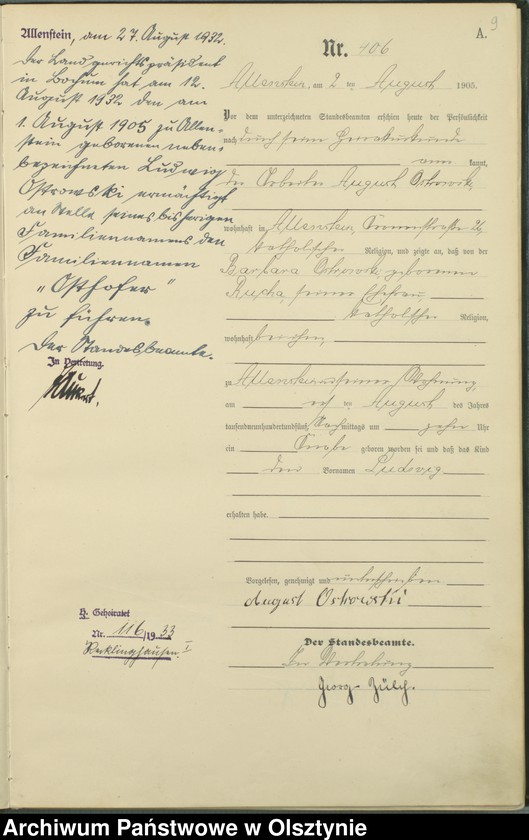 9
A.
Nr. 406
Allenstein, am 2 ten August 1905.
Vor dem unterzeichneten Standesbeamten erschien heute der Persönlichkeit
nach durch seine
kannt,
der Arbeiter August Ostrowski,
wohnhaft in Allenstein,
katholischer Religion, und zeigte an, daß von der
Barbara Ostrowski, geborenen
seiner Ehefrau,
katholischer Religion,
wohnhaft bei ihm,
zu Allenstein in seiner Wohnung
am ersten August des Jahres
tausendneunhundertundfünf Nachmittags um zehn Uhr
ein Knabe geboren worden sei und daß das Kind
den Vornamen Ludwig
erhalten habe.
Vorgelesen, genehmigt und unterschrieben
August Ostrowski
Der Standesbeamte.
In Vertretung
Georg Zülch.
Allenstein, am 27. August 1932.
Der Landgerichtspräsident
in Bochum hat am 12.
August 1932 den am
1. August 1905 zu Allen-
stein geborenen neben-
bezeichneten Ludwig
Ostrowski ermächtigt
an Stelle seines bisherigen
Familiennamens den
Familiennamen
"Osthofer"
zu führen.
Der Standesbeamte.
In Vertretung.
H. Geheiratet
Nr. 116/1933
Recklinghausen I
Archiwum Państwowe w Olsztynie